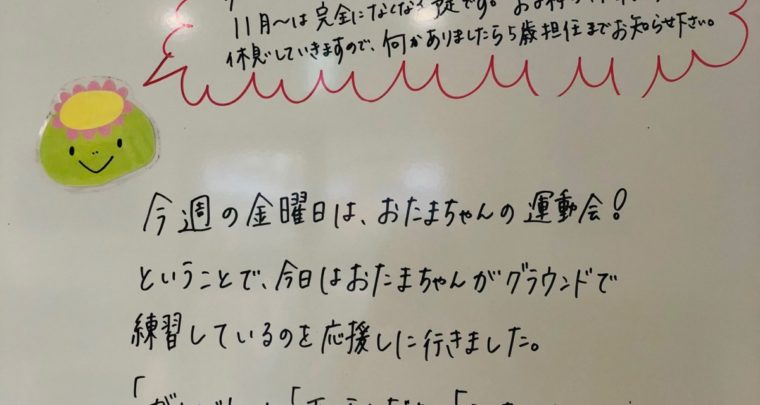 11月〜は完全になくなる予定です。お
休息していきますので、何かありましたら5歳担任までお知らせ下さい。
今週の金曜日は、おたまちゃんの運動会!
ということで、今日はおたまちゃんがグラウンドで
練習しているのを応援しに行きました。